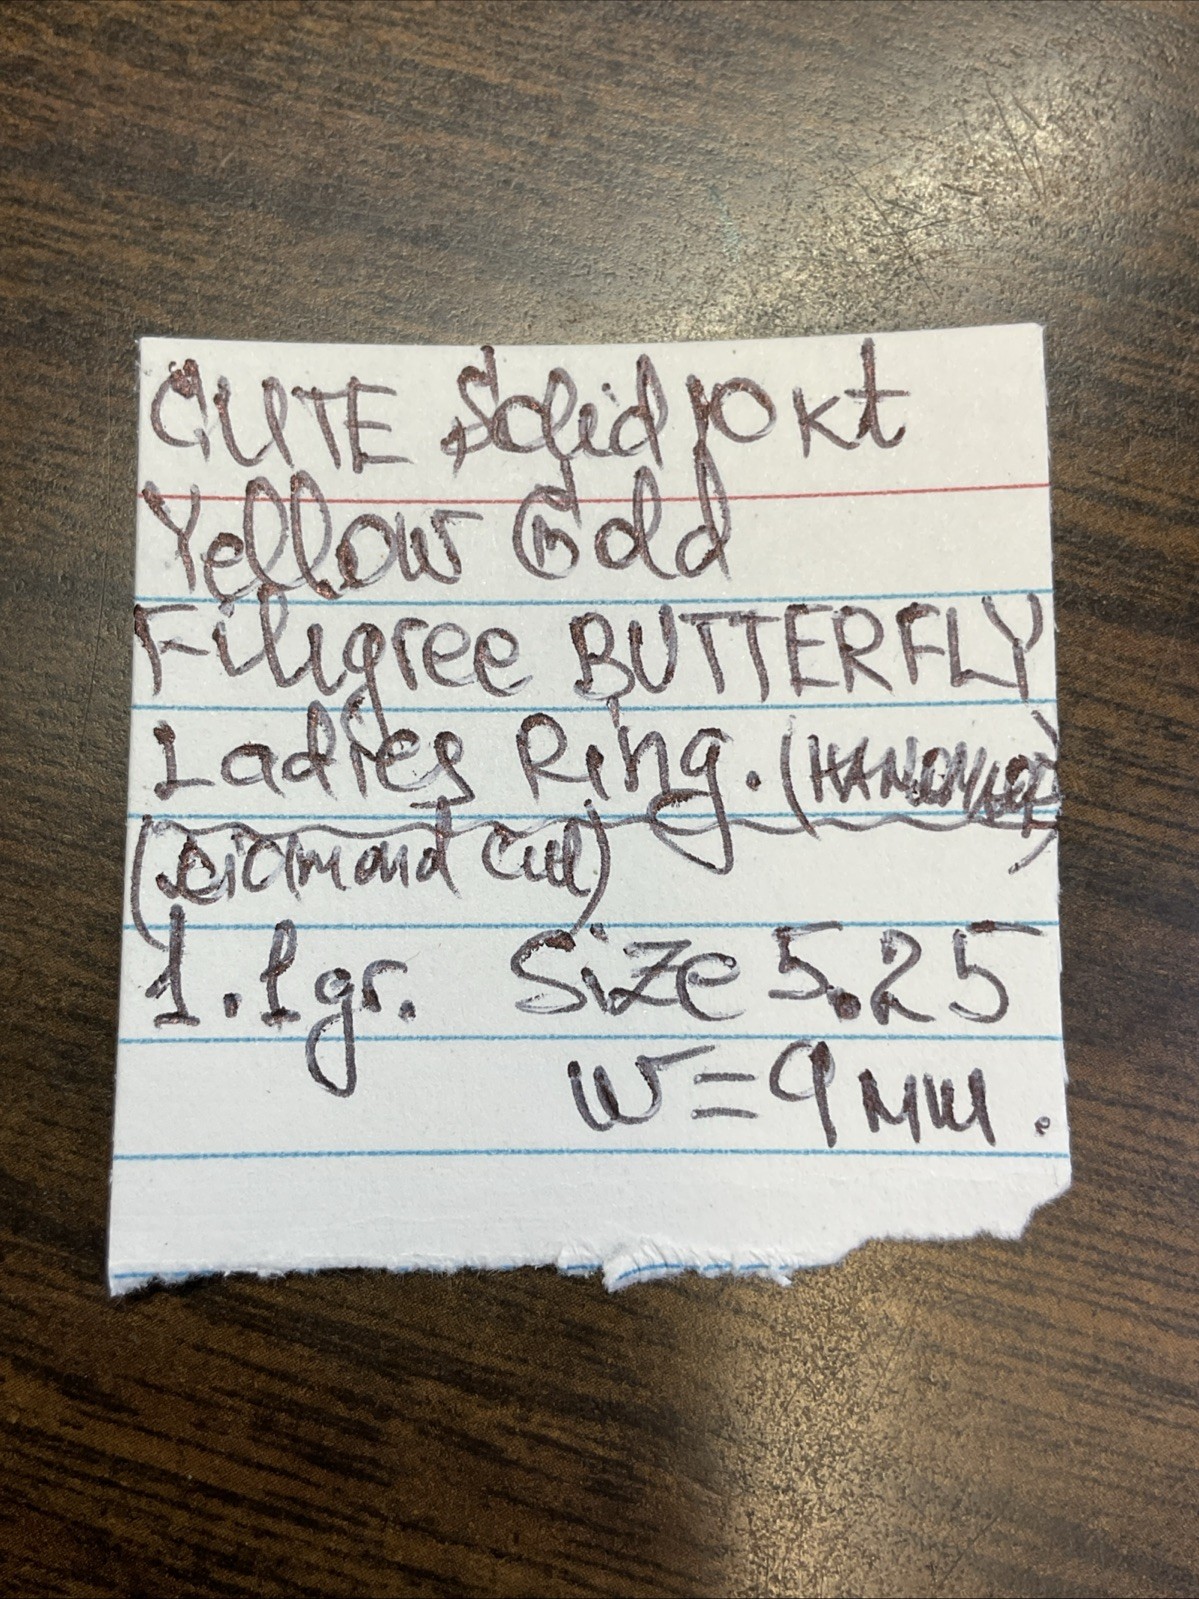 CUTE Solid 10 kt
Yellow Gold
Filigree BUTTERFLY
Ladies Ring. (HANDMADE)
(Diamond Cut)
1.1gr. Size 5.25
W=9мм.